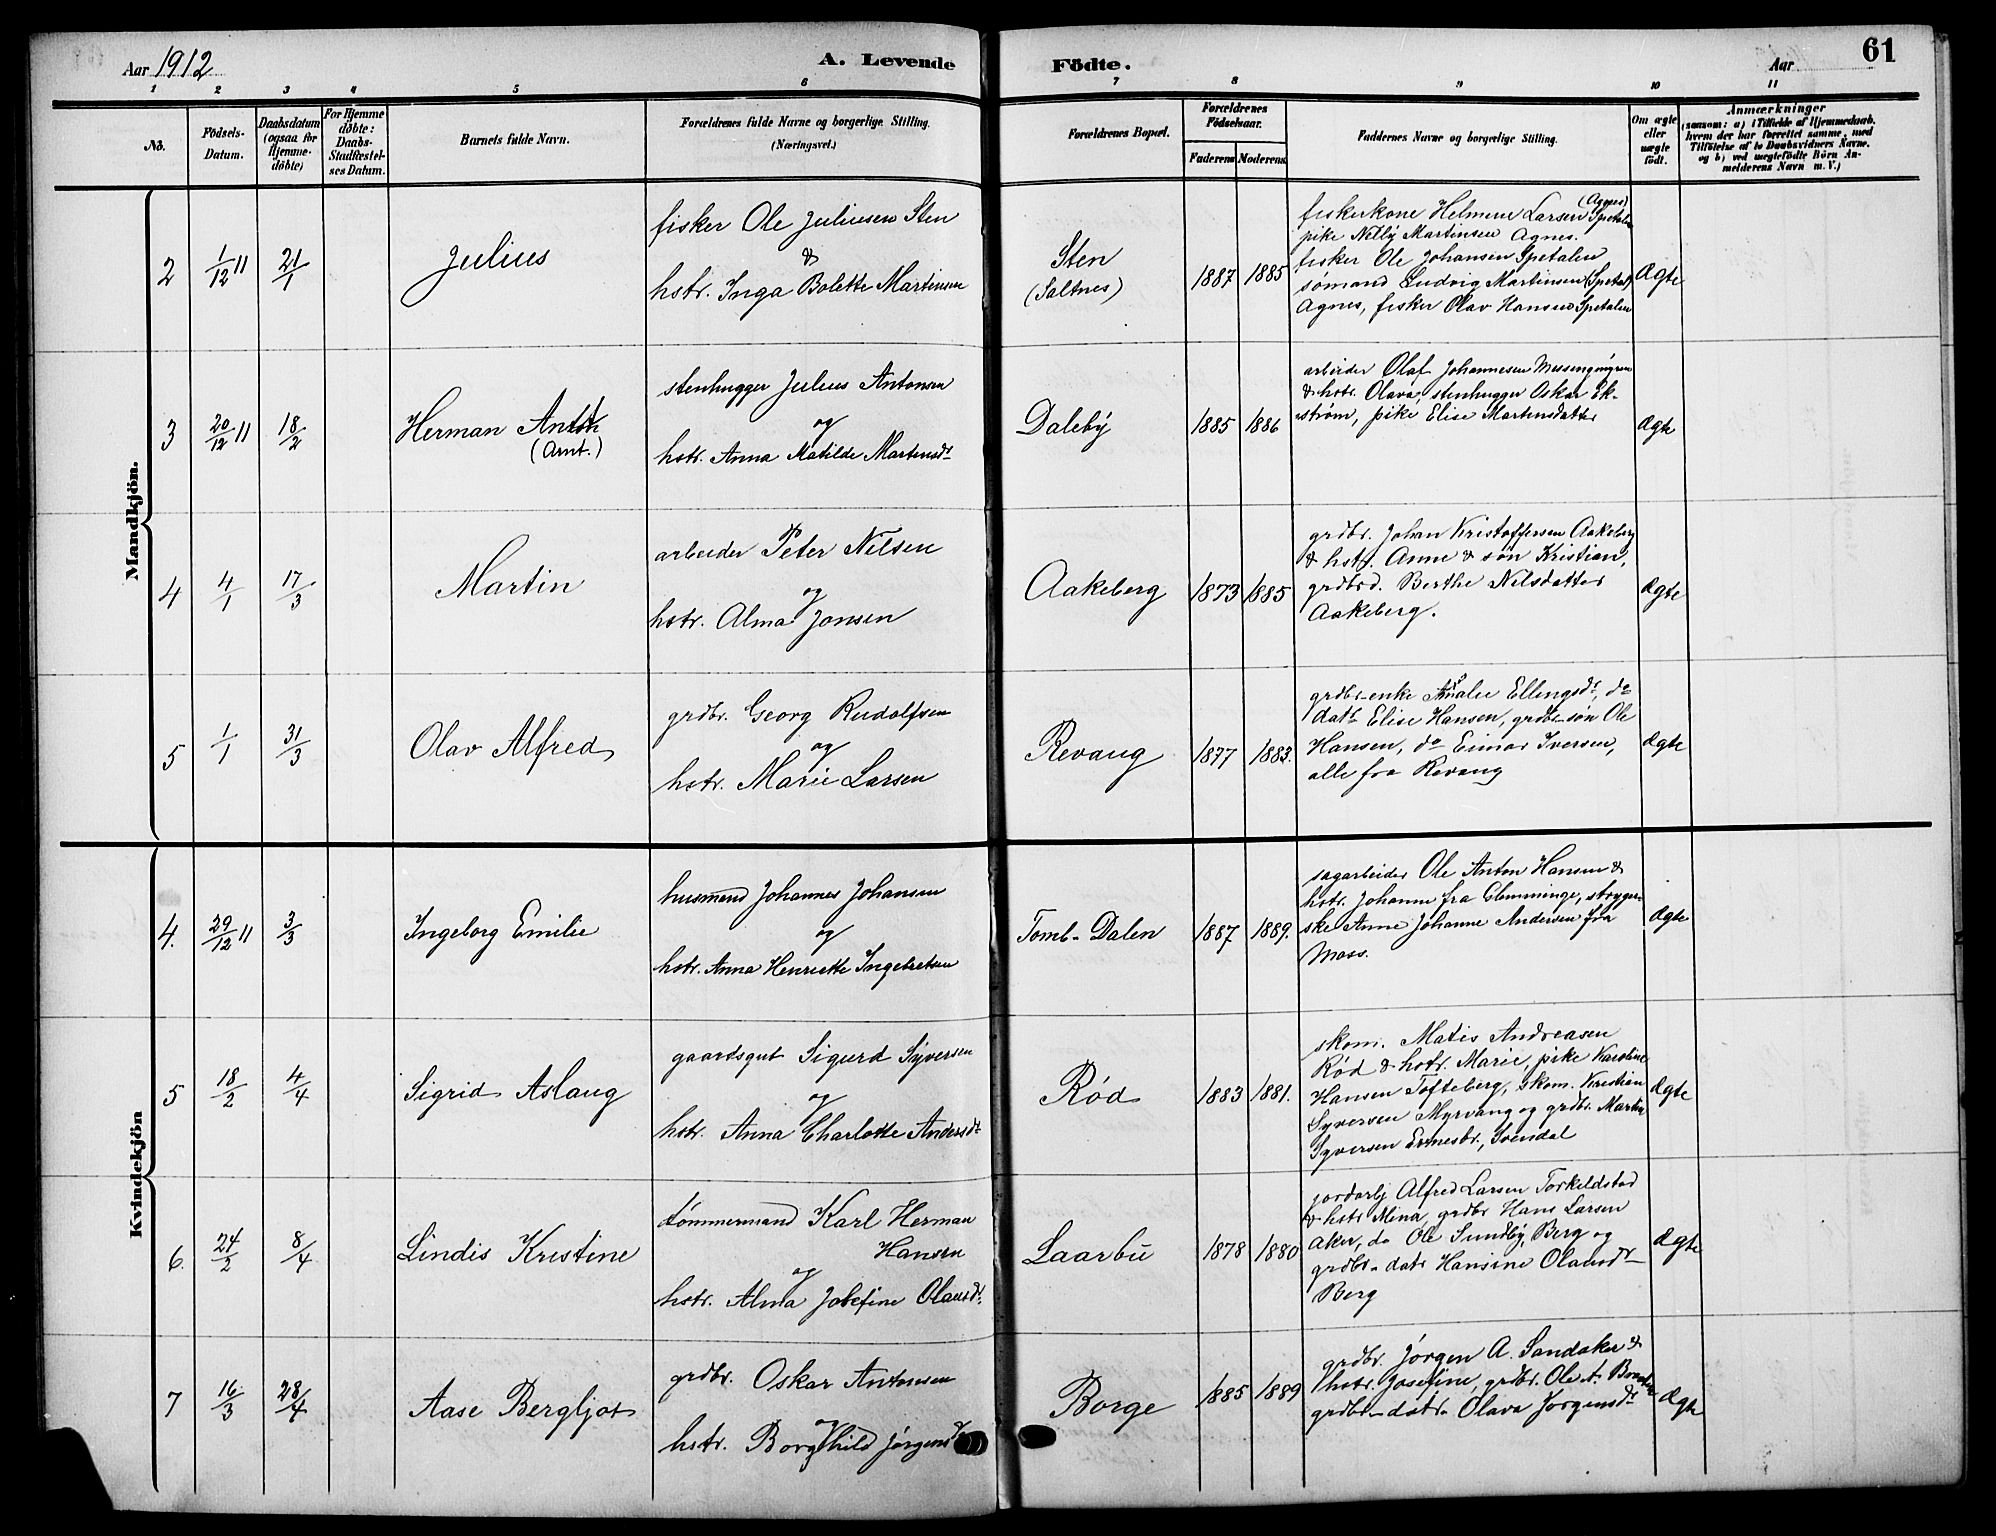 Aar 1912
A. Levende Födte.
Aar
61
1 2 3 4 5 6 7 8 9 10 11
No.
Födsels-
Datum.
Daabsdatum
(ogsaa for
Hjemme-
döbte)
For Hjemme
döbte:
Daabs-
Stadfæstel-
ses Datum.
Barnets fulde Navn.
Forældrenes fulde Navne og borgerlige Stilling.
(Næringsvei.)
Forældrenes Bopæl.
Forældrenes
Födselsaar.
Faderens Moderens
Faddernes Navne og borgerlige Stilling.
Om ægte
eller
uægte
födt.
Anmærkninger
(saasom: a) i Tilfælde af Hjemmedaab,
hvem der har forrettet samme, med
Tilföielse af to Daabsvidners Navne.
og b) ved uægtefödte Börn An-
melderens Navn m. V.)
Mandkjön.
2
1/12 11
21/1
Julius
fisker Ole Juliusen Sten
&
hstr. Inga Bolette Martinsen
Sten
(Saltnes)
1887
1885
fiskerkone Helmine Larsen (Agnes) Spetalen
pike Nelly Martinsen Agnes.
fisker Ole Johansen Spetalen
sømand Ludvig Martinsen (Spetal)
Agnes, fisker Olav Hansen Spetalen
Ægte
3
20/12 11
18/2
Herman
(Arnt.)
stenhugger Julius Antonsen
og
hstr. Anna Matilde Martinsdr
Daleby
1885
1886
arbeider Olaf Johannesen
& hstr. Olava, stenhugger Oskar Ek-
strøm, pike Elise Martinsdatter
Ægte
4
4/1
17/3
Martin
arbeider Peter Nilsen
og
hstr. Alma Jonsen
Aakeberg
1873
1885
grdbr. Johan Kristoffersen Aakeberg
& hstr. Anne & søn Kristian,
grdbrd. Berthe Nilsdatter
Aakeberg.
Ægte
5
1/1
31/3
Olav Alfred
grdbr. Georg Rudolfsen
og
hstr. Marie Larsen
Revaug
1877
1883.
grdbr-enke Amalie Ellingsdr, do
datr Elise Hansen, grdbr-søn Ole
Hansen, do Einar Iversen,
alle fra Revaug
Ægte
Kvindekjön
4.
29/12 11
3/3
Ingeborg Emilie
husmand Johannes Johansen
og
hstr. Anna Henriette Ingebretsen
Tomb-Dalen
1887
1889.
sagarbeider Ole Anton Hansen &
hstr. Johanne fra Glemminge, stryger-
ske Anne Johanne Andersen fra
Moss.
Ægte
5
18/2
4/4
Sigrid Aslaug
gaardsgut Sigurd Syversen
og
hstr. Anna Charlotte Andersdr
Rød
1883
1881.
skom. Matis Andreasen
Rød & hstr. Marie, pike Karoline
Hansen Tofteberg, skom. Kristian
Syversen Myrvang og grdbr. Martin
Syversen Svendal
Ægte
6.
24/2
8/4
Lindis Kristine
tømmermand Karl Herman
Hansen
og
hstr. Alma Josefine Olausdr.
Laarbu
1878
1880
jordarbj Alfred Larsen Torkildstad
& hstr Mina, grdbr Hans Larsen
Aker, do Ole Sundby, Berg og
grdbr-datr Hansine Olausdr
Berg
Ægte
7
16/3
28/4
Aase Bergljot
grdbr. Oskar Antonsen
og
hstr. Borghild Jørgensdr
Borge
1885
1889
grdbr. Jørgen A. Sandaker &
hstr. Josefine, grdbr. Ole A.
grdbr-datr. Olava Jørgensdr
Ægte